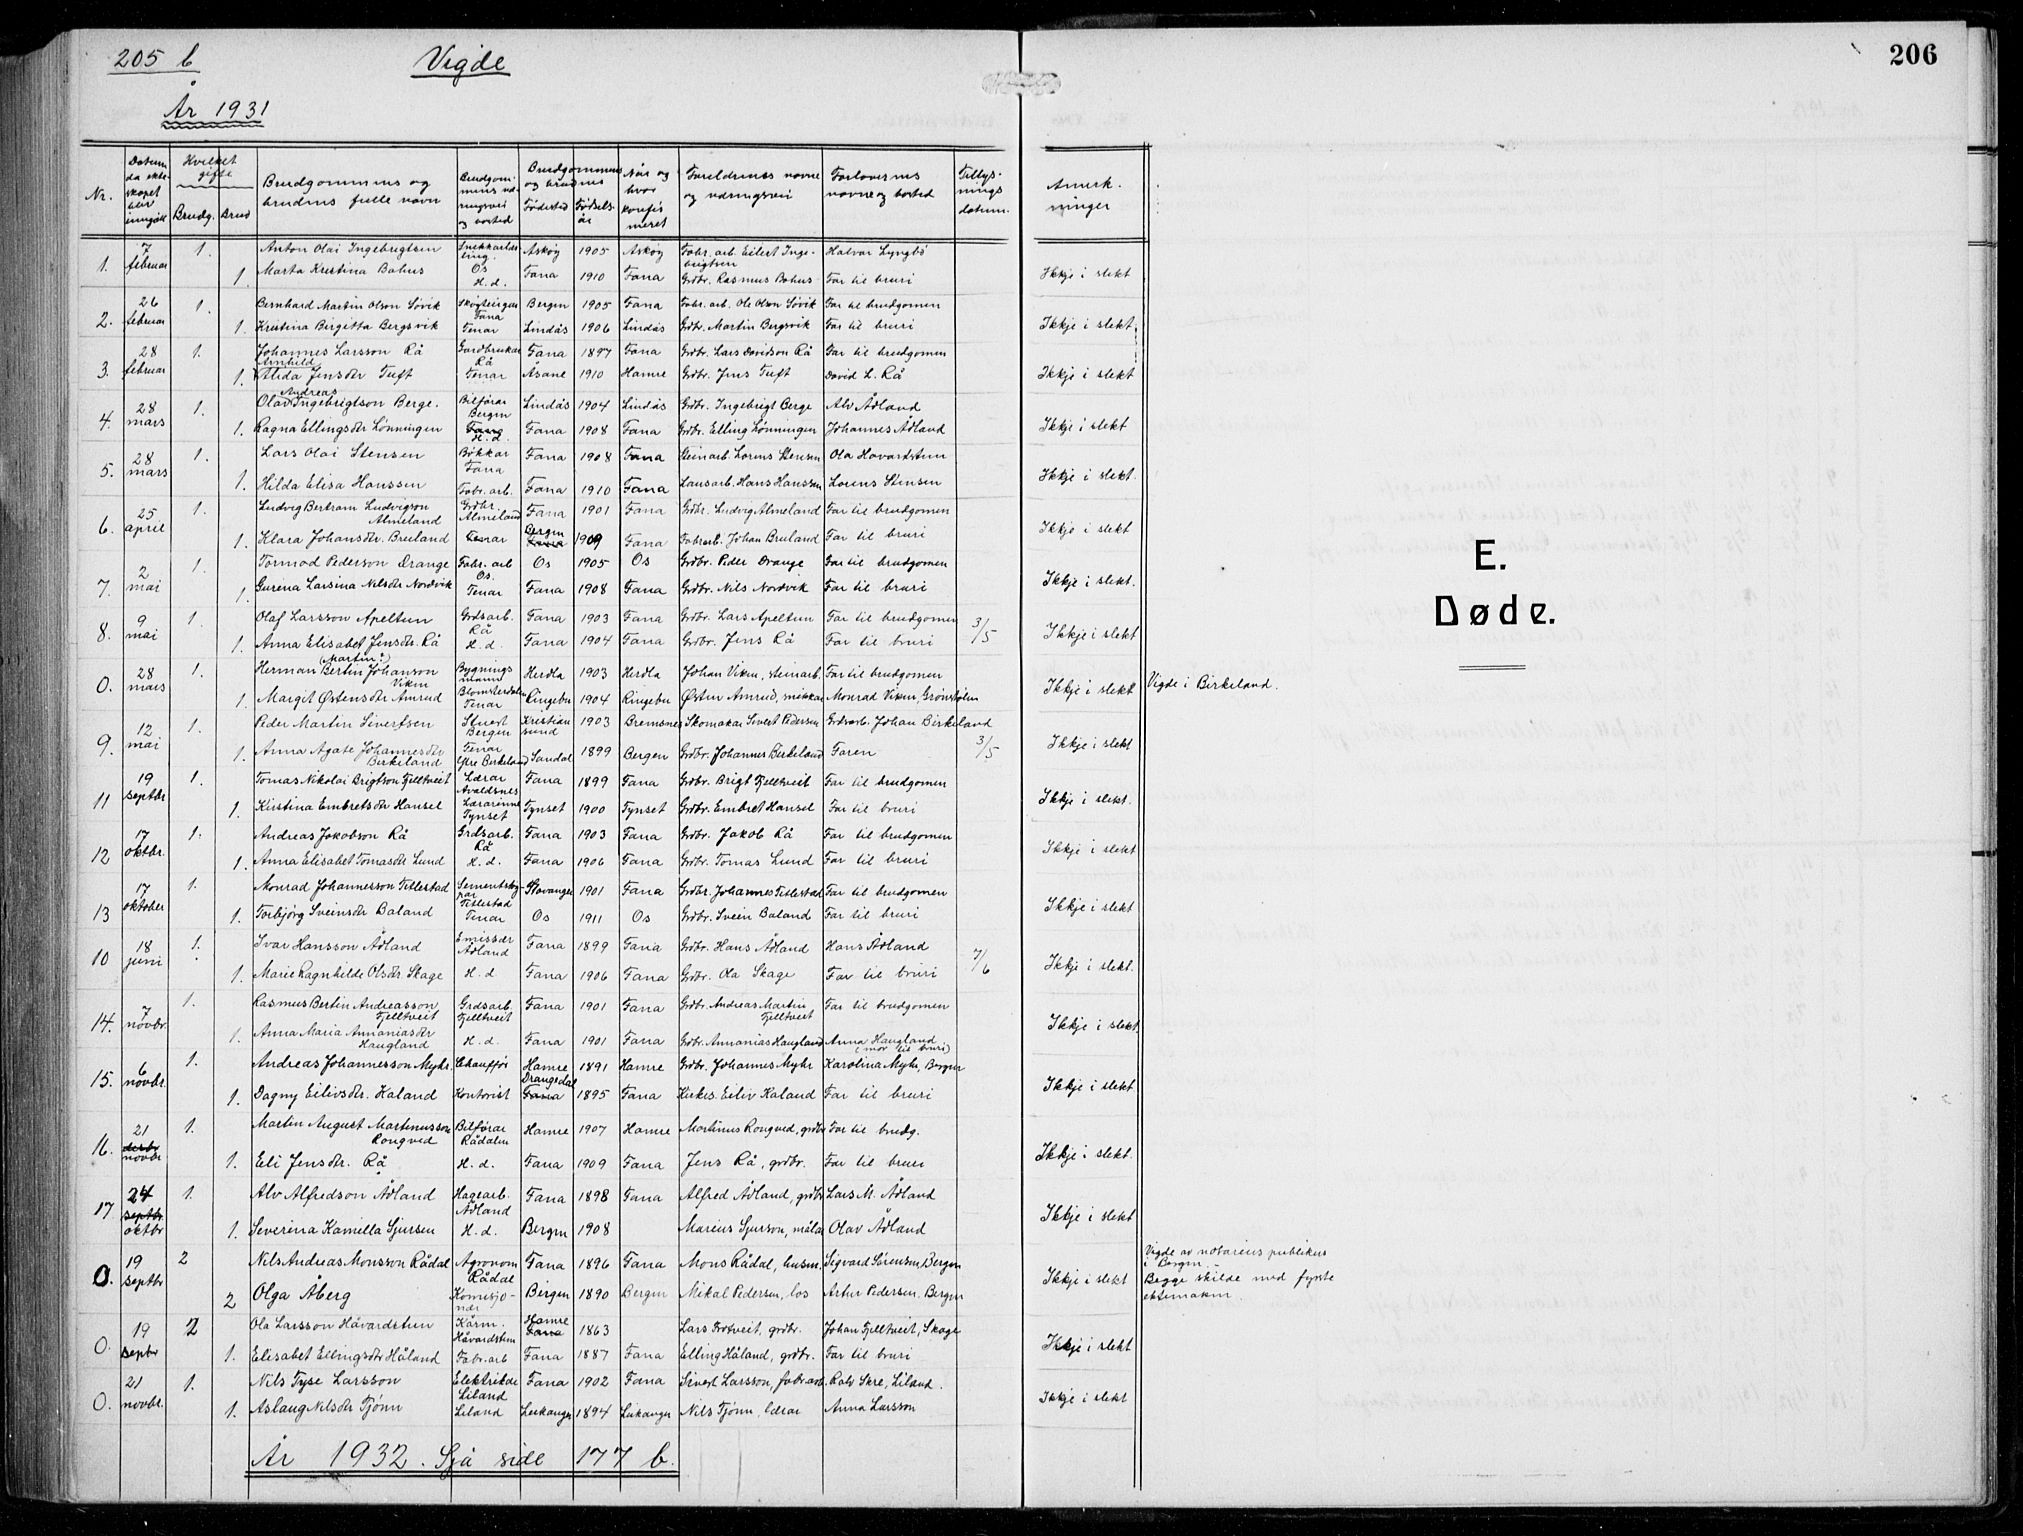 205 b
Vigde
År 1931
206
Nr.
Datum da ekteskapet blir inngått
Hvilket gifte
Brudg. Brud
Brudgommens og brudens fulle navn
Brudgommens næringsvei og bosted
Brudgommens og brudens
Fødested
Fødselsår
Når og hvor konfirmeret
Foreldrenes navne og næringsvei
Forlovernes navne og bosted
Tillysnings datum.
Anmerkninger
1. 7 februar 1. Anton Olai Ingebrigtsen Os Askøy 1905 Askøy Fabr. arb. Eilert Ingebrigtsen Halvar Lyngbø
1. Marta Kristina Bahus H.d. Fana 1910 Fana Grdbr. Rasmus Bahus Far til bruri Ikkje i slekt
2. 26 februar 1. Bernhard Martin Olson Søvik Fana Bergen 1905 Fana Fabr. arb. Ole Olson Søvik Far til brudgomen
1. Kristina Birgitta Bergsvik Tenar Lindås 1906 Lindås Grdbr. Martin Bergsvik Far til bruri Ikkje i slekt.
3. 28 februar 1. Johannes Larsson Rå Gardbrukar Rå Fana 1897 Fana Grdbr. Lars Davidson Rå Far til brudgomen
1. Arnhild Alida Jensdtr Tuft Tenar Åsane 1910 Hamre Grdbr. Jens Tuft David L. Rå Ikkje i slekt
4. 28 mars 1. Olav Andreas Ingebrigtson Berge. Bilførar Bergen Lindås 1904 Lindås Grdbr. Ingebrigt Berge Alv Ådland
1. Ragna Ellingsdtr Lønningen Fana H.d. Fana 1908 Fana Grdbr. Elling Lønningen Johannes Ådland Ikkje i slekt
5. 28 mars 1. Lars Olai Stensen Bøkkar Fana Fana 1908 Fana Steinarb. Lorens Stensen Ola Havardstun
1. Hilda Elisa Hanssen Fabr. arb. Fana 1910 Fana Lausarb. Hans Hanssen Lorens Stensen Ikkje i slekt.
6. 25 april 1. Ludvig Bertram Ludvigson Almeland Grdbr. Almeland Fana 1901 Fana Grdbr. Ludvig Almeland Far til brudgomen
1. Klara Johansdtr. Breiland Tenar Bergen Fana 1909 Fana Fabrarb. Johan Breiland Far til bruri Ikkje i slekt
7. 2 mai 1. Tormod Pederson Drange Fabr. arb Os. Os 1905 Os Grdbr. Peder Drange Far til brudgomen
1. Gurina Larsina Nilsdtr Nordvik Tenar Fana 1908 Fana Grdbr. Nils Nordvik Far til bruri Ikkje i slekt.
8. 9 mai 1. Olaf Larsson Apeltun Grdsarb. Rå Fana 1903 Fana Grdbr. Lars Apeltun Far til brudgomen 3/5
1. Anna Elisabet Jensdtr. Rå H.d. Fana 1904 Fana Grdbr. Jens Rå Far til bruri Ikkje i slekt
0. 28 mars 1. Herman (Martin?) Bertin Johanson Viken Bygningsmann Blomsterdalen Herdla 1903 Herdla Johan Viken, steinarb. Far til brudgomen
1. Margit Østensdtr Amrud Tenar Ringebu 1904 Ringebu Østen Amrud, snikkar Monrad Viken, Grønstølen Ikkje i slekt Vigde i Birkeland.
9. 12 mai 1. Peder Martin Sivertsen Stuert Bergen Kristiansund 1903 Bremsnes Skomakar Sivert Pedersen Grdsarb. Johan Birkeland
1. Anna Agate Johannesdtr Birkeland Tenar Ytre Birkeland Sandal 1899 Bergen Grdbr. Johannes Birkeland Faren 3/5 Ikkje i slekt
11 19 septbr 1. Tomas Nikolai Brigtson Fjelltveit Lærar Avaldsnes Fana 1899 Fana Grdbr. Brigt Fjelltveit Far til brudgomen
1. Kirstina Embretsdtr Hansel Lærarinne Tynset Tynset 1900 Tynset Grdbr. Embret Hansel Far til bruri Ikkje i slekt.
12 17 oktbr. 1. Andreas Jakobson Rå Grdsarb. Rå Fana 1903 Fana Grdbr. Jakob Rå Far til brudgomen
1. Anna Elisabet Tomasdtr Lund H.d. Fana 1906 Fana Grdbr. Tomas Lund Far til bruri Ikkje i slekt
13 17 oktober 1. Monrad Johannesson Titlestad Titlestad Stavanger 1901 Fana Grdbr. Johannes Titlestad Far til brudgomen
1. Torbjørg Sveinsdtr Baland Tenar Os 1911 Os Grdbr. Svein Baland Far til bruri Ikkje i slekt
10 18 juni 1. Ivar Hansson Ådland Emissær Ådland Fana 1899 Fana Grdbr. Hans Ådland Hans Ådland 7/6
1. Marie Ragnhilde Olsdtr Skage H.d Fana 1906 Fana Grdbr. Ola Skage Far til bruri Ikkje i slekt.
14. 7 novbr. 1. Rasmus Bertin Andreasson Fjelltveit Grdsarb. Fjelltveit Fana 1901 Fana Grdbr. Andreas Martin Fjelltveit Far til brudgomen
1. Anna Maria Annaniasdtr Haugland H.d. Fana 1901 Fana Grdbr. Annanias Haugland Anna Haugland (mor til bruri) Ikkje i slekt.
15. 6 novbr. 1. Andreas Johannesson Myhr. Chauffør Hamre 1891 Hamre Grdbr. Johannes Myhr Karolina Myhr, Bergen
1. Dagny Eilivsdtr. Kaland Kontorist Drangsdal Fana 1895 Fana Kirkes. Eiliv Kaland Far til bruri Ikkje i slekt
16. 21 novbr 1. Martin August Martinusson Rongved Bilførar Rådalen Hamre 1907 Hamre Martinus Rongved, grdbr Far til brudg.
1. Eli Jensdtr. Rå H.d. Fana 1909 Fana Jens Rå, grdbr. Far til bruri Ikkje i slekt.
17. 24 septbr oktbr 1. Alv Alfredson Ådland Hagearb. Ådland Fana 1898 Fana Alfred Ådland, grdbr Lars M. Ådland
1. Severina Kamilla Sjursen H.d. Bergen 1908 Marius Sjurson, målar Olav Ådland Ikkje i slekt
0. 19 septbr 2 Nils Andreas Monsson Rådal Agronom Rådal Fana 1896 Fana Mons Rådal, husm. Sigvard Sørensen, Bergen Vigde av notarius publikus i Bergen.
2 Olga Åberg Komisjonær Bergen 1890 Bergen Mikal Pedersen, los Artur Pedersen. Bergen Ikkje i slekt Begge skilde med fyrste ektemakar.
0. 19 septbr 2 Ola Larsson Håvardstun Kårm. Håvardstun Hamre Fana 1863 Lars Totveit, grdbr. Johan Fjelltveit, Skage
1. Elisabet Ellingsdtr Håland Fabr. arb Fana 1887 Fana Elling Håland, grdbr. Far til bruri Ikkje i slekt
0. 21 novbr. 1. Nils Tyse Larsson Elektrikar Liland Fana 1902 Fana Sivert Larsson, fabr. arb. Ralv Skre, Liland.
1. Aslaug Nilsdtr Tjønn Liland Leikanger 1894 Leikanger Nils Tjønn, lærar Anna Larsson Ikkje i slekt
År 1932. Sjå side 177 b.
E.
Døde.